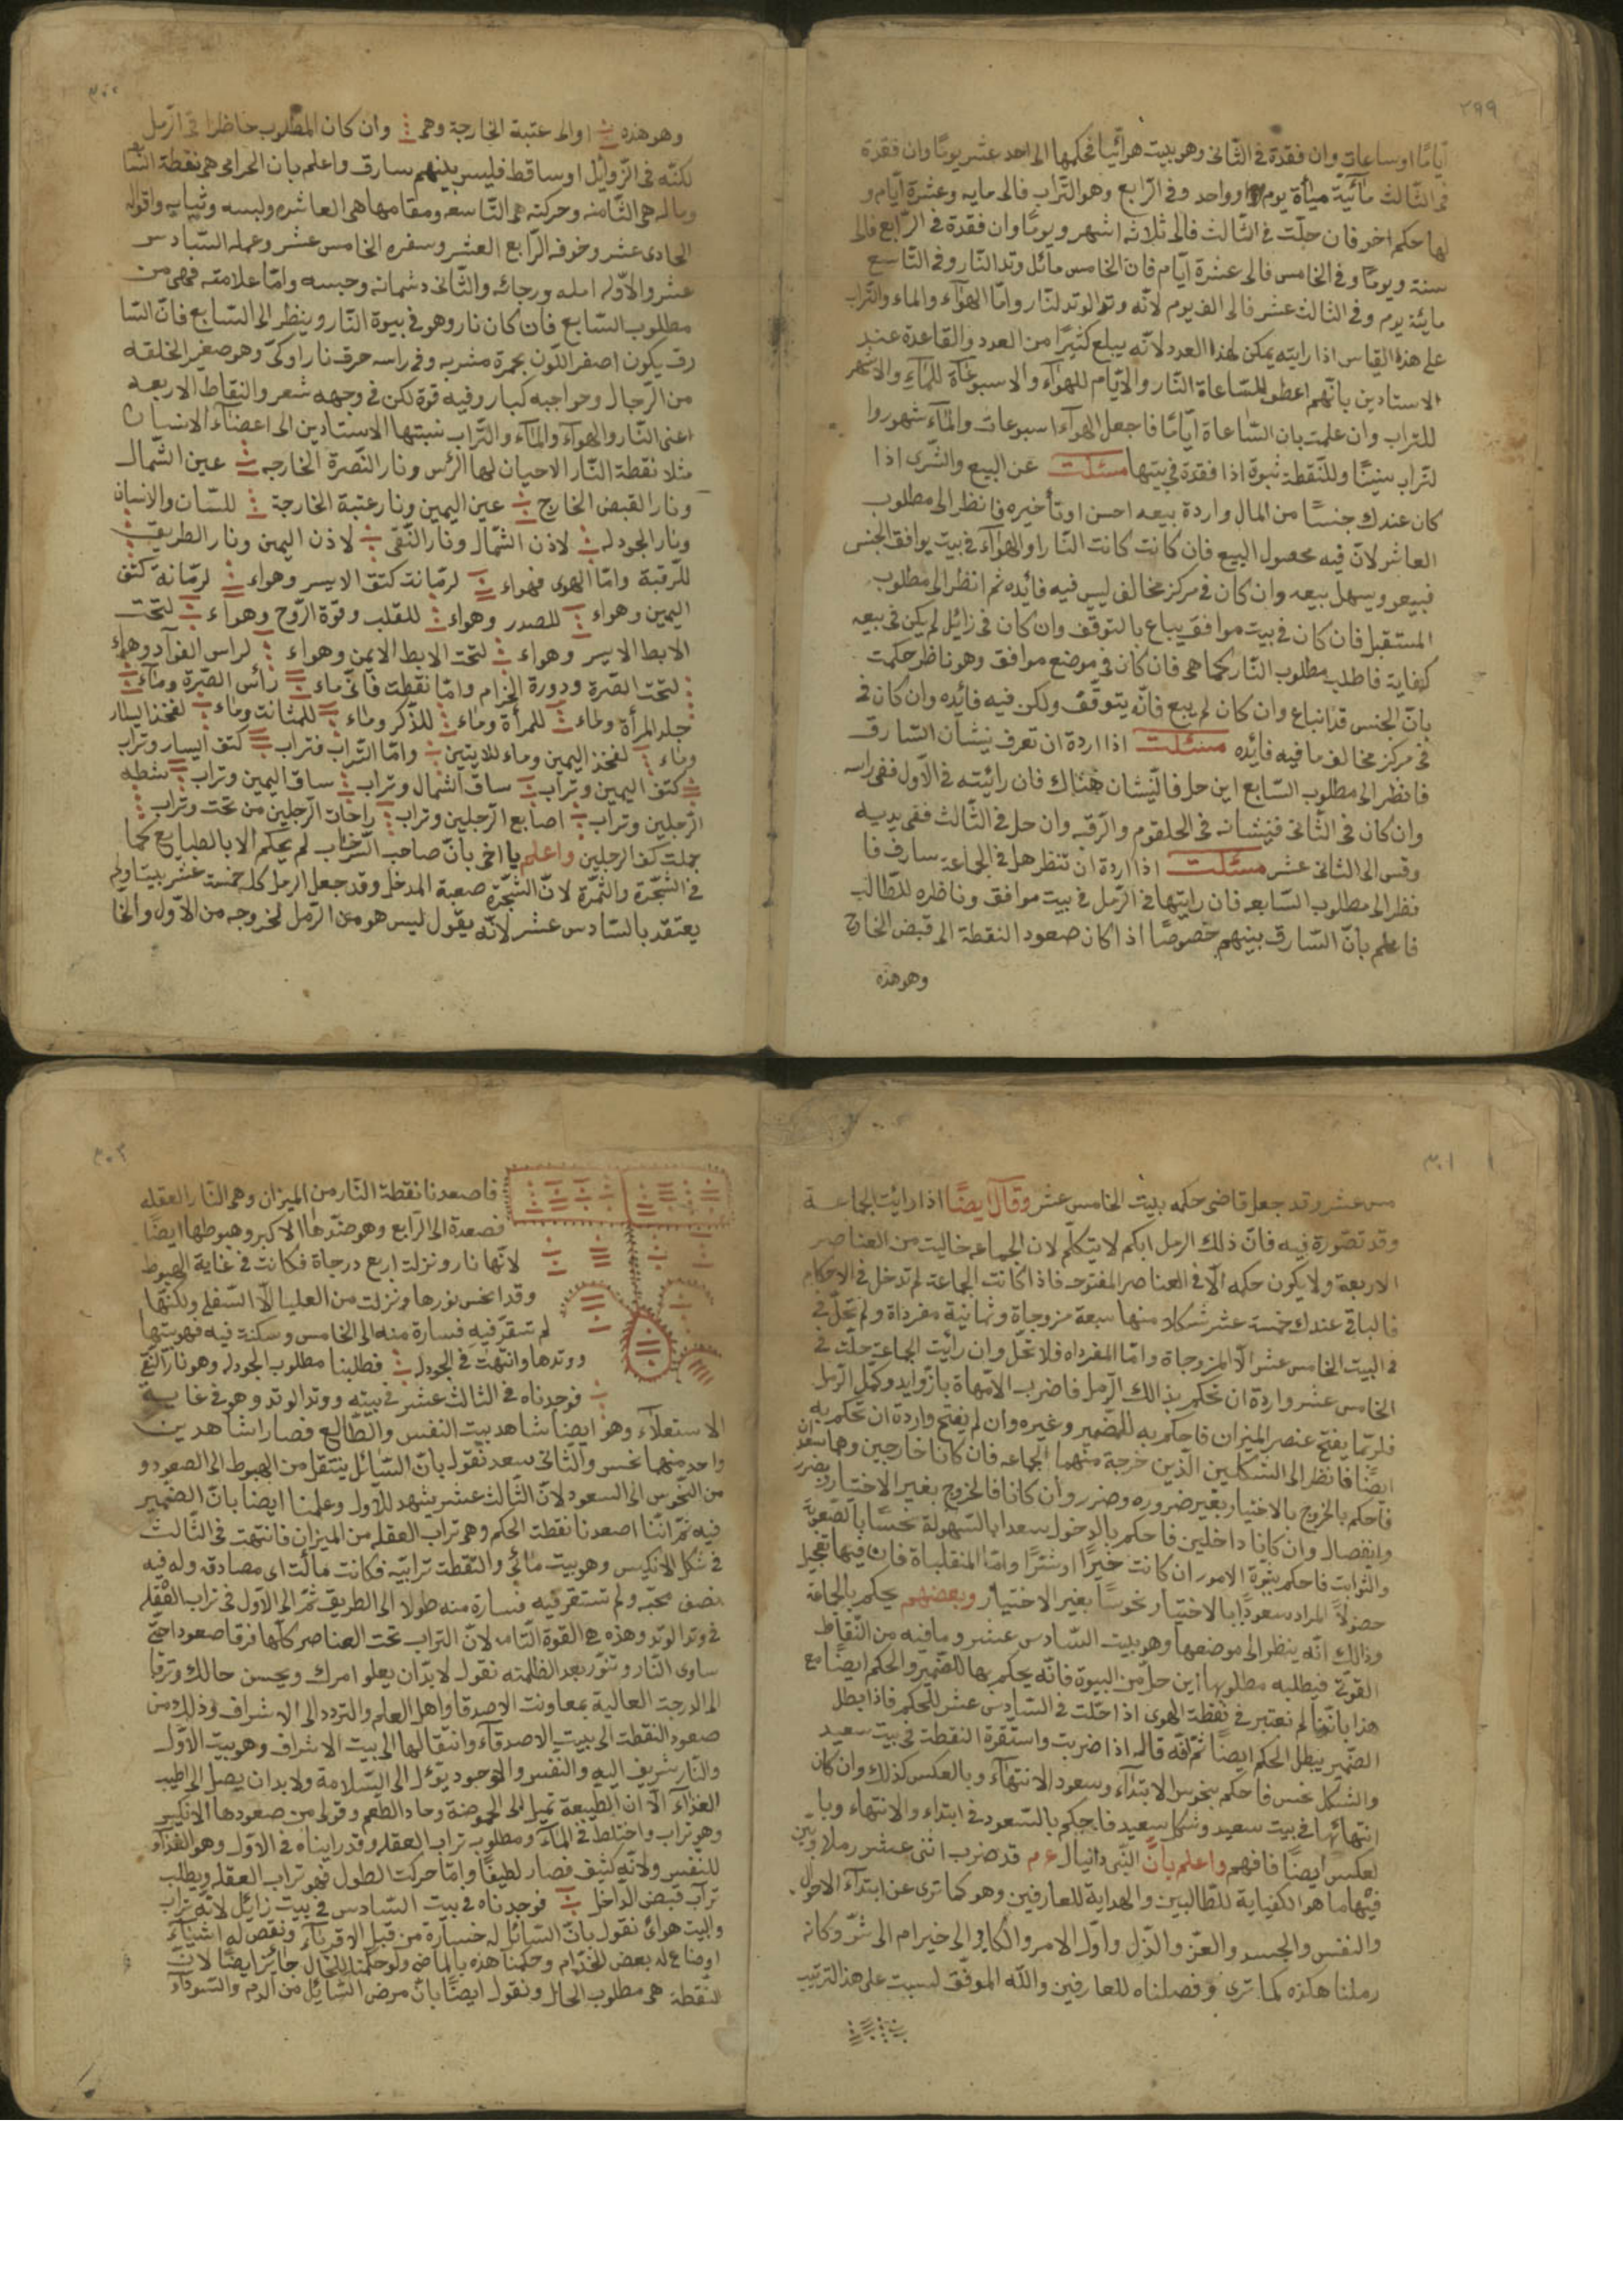 ٢٩٩
ايّامًا او ساعات وان فقدة فى الثّانى وهو بيت هوائيا فحكمها الى احد عشر يومًا وان فقدة
فى الثّالث مائية مياة يوم او واحد وفى الرّابع وهو التّراب فالى مايه وعشرة ايّام و
لها حكم اخر فان حلّت فى الثّالث فالى ثلاثه اشهر ويومًا وان فقدة فى الرّابع فالى
سنة ويومًا وفى الخامس فالى عشرة ايّام فان الخامس مائل وتد النّار وفى التّاسع
مايئة يوم وفى الثالث عشر فالى الف يوم لانّه وتد الوتد لنّار وامّا الهوآء والماء والتّراب
على هذا القياس اذا رايته يمكن لهذا العدد لانّه يبلع كثيرًا من العدد والقاعدة عند
الاستادين بانّهم اعطوا للسّاعاة النّار والايّام للهوآء والاسبوعاة للمآء والاشهر
للتراب وان علمت بان السّاعاة ايّامًا فاجعل الهوآء اسبوعات والمآء شهور وا
لتراب سنينًا وللنّقطة ثبوة اذا فقدة فى بيتها مسئلت عن البيع والشّرى اذا
كان عندك جنسًا من المال واردة بيعه احسن او تأخيره فانظر الى مطلوب
العاشر لانّ فيه محصول البيع فان كانت كانت النّار او الهوآء فى بيت يوافق الجنس
فبيعو ويسهل بيعه وان كان فى مركز مخالف ليس فيه فايده ثم انظر الى مطلوب
المستقبل فان كان فى بيت موافق يباع بالتوقف وان كان فى زائل لم يكن فى بيعه
كفاية فاطلب مطلوب النّار كما هى فان كان فى موضع موافق وهو ناظر حكمت
بانّ الجنس قد انباع وان كان لم يبع فانّه يتوقّف ولكن فيه فايده وان كان فى
فى مركز مخالف ما فيه فايده مسئلت اذا اردة ان تعرف نيشان السّارق
فانظر الى مطلوب السّابع اين حل فالنّيشان هناك فان رائيته فى الاول ففى راسه
وان كان فى الثّانى فنيشانه فى الحلقوم والرّقبه وان حل فى الثّالث ففى يديه
وقس الى الثانى عشر مسئلت اذا اردة ان تنظر هل فى الجماعة سارق فا
نظر الى مطلوب السّابعه فان رايتها فى الرّمل فى بيت موافق وناظره للطّالب
فاعلم بانّ السّارق بينهم خصوصًا اذا كان صعود النقطة الى قبض الخارج
وهو هذه
٣٠٠
وهو هذه او الى عتبة الخارجة وهى وان كان المطلوب حاظرا فى الرّمل
لكنّه فى الزّوايل او ساقط فليس بينهم سارق واعلم بان الحرامى هى نقطة السّا
وماله هى الثّامنه وحركته هى التّاسعه ومقامها هى العاشره ولبسه وثيابه واقواله
الحادى عشر وخوفه الرّابع العشر وسفره الخامس عشر وعمله السّادس
عشر والاوّل امله ورجائه والثّانى دشمانه وحبسه وامّا علامته فهى من
مطلوب السّابع فان كان نار وهو فى بيوة النّار وينظر الى السّابع فانّ السّا
رق يكون اصفر اللّون بحمرة مشربه وفى راسه حرق نار او كىّ وهو صغير الخلقه
من الرّجال وحواجبه كبار وفيه قوة لكن فى وجهه شعر والنقاط الاربعه
اعنى النّار والهوآء والمآء والتّراب نسبتها الاستادين الى اعضآء الانسان
مثلا نقطة النّار الاحيان لها الرّس ونار النّصرة الخارجه عين الشّمال
ونار القبض الخارج عين اليمين ونار عتبة الخارجة للسّان والاسنان
ونار الجودله لاذن الشّمال ونار النّقى لاذن اليمين ونار الطريق
للرّقبة وامّا الهوى فهواء لرمّانت كتف الايسر وهواء لرمّانة كتف
اليمين وهواء للصدر وهواء للقلب وقوّة الرّوح وهواء لتحت
الابط الايسر وهواء لتحت الابط الايمن وهواء لراس الفوآد وهواء
لتحت الصّرة ودورة الحزام وامّا نقطت فانّى ماء رأس الصّرة ومآء
حبلر المرأة ولماء للمرأة وماء للذّكر وماء للمثانت وماء لفخذ اليسار
وماء لفخذ اليمين وماء للايتين وامّا التّراب فتراب كتف اليسار وتراب
كتف اليمين وتراب ساق الشمال وتراب ساق اليمين وتراب شطه
الرّجلين وتراب اصابع الرّجلين وتراب راحات الرّجلين من تحت وتراب
بملت كف الرجلين واعلم يا اخى بانّ صاحب لم يحكم الا بالطبايع كما
فى الشّجرة والثمرة لانّ الشّجرة صعبة المدخل وقد جعل الرمل كله خمسة عشر بيتا ولم
يعتقد بالسّادس عشر لانّه يقول ليس هو من الرّمل لخروجه من الاوّل والخا
٣٠١
مس عشر وقد جعل قاضى حكمه بيت الخامس عشر وقال ايضًا اذا رائيت الجماعة
وقد تصّورة فيه فانّ ذلك الرمل ابكم لا يتكلّم لان الجماعه خاليت من العناصر
الاربعة ولا يكون حكمه الّا فى العناصر المفتوحه فاذا كانت الجماعة لم تدخل فى الاحكام
فالباقى عندك خمسة عشر شكلا منها سبعة مزوجاة وثمانية مفرداة ولم تحلّ فى
فى البيت الخامس عشر الّا المزوجاة وامّا المفرداه فلا تحلّ وان رأيت الجماعة حلّت فى
الخامس عشر واردة ان تحكم بذالك الرّمل فاضرب الامّهاة بازّوايد وكمّل الرّمل
فلربّما يفتح عنصر الميزان فاحكم به للضمير وغيره وان لم يفتح واردة ان تحكم به
ايضًا فانظر الى الشكلين الّذين خرجة منهما الجماعه فان كانا خارجين وهما سعدان
فاحكم بالخروج بالاختيار بغير ضروره وضرر وان كانا فالخروج بغير الاختيار وبضرر
وانفصال وان كانا داخلين فاحكم بالدخول سعدا بالسّهولة نحسًا بالصّعوبة
والثّوابت فاحكم بنجزة الامور ان كانت خيرًا او شرًّا وامّا المنقلباة فان فيها تعجيل
حصولاً المراد سعودًا بالاختيار نحوسًا بغير الاختيار وبعضهم يحكم بالجماعة
وذالك انّه ينظر الى موضعها وهو بيت السّادس عشر وما فيه من النّقاط
القويّة فيطلبه مطلوبها اين حل من البيوة فانّه يحكم بها للضّمير والحكم ايضًا مع
هذا باننّا لم نعتبر فى نقطة الهوى اذا حلّت فى السّادس عشر للحكم فاذا بطل
الضّمير يبطل الحكم ايضًا ثمّ انّه قال اذا ضربت واستقرة النقطة فى بيت سعيد
والشكل نحس فاحكم بنحوس الابتدآء وسعود الانتهآء وبالعكس كذلك وان كان
انتهائها فى بيت سعيد وشكل سعيد فاحكم بالسّعود فى ابتداء والانتهاء وبا
لعكس ايضًا فافهم واعلم بانّ النّبى دانيال ع م قد ضرب اثنى عشر رملا وبيّن
فيها ما هو الكفياية للطّالبين والهداية للعارفين وهو كما ترى عن ابتدآء الاحوال
والنفس والجسد والعزّ والذّل واوّل الامر والكافى الى خير ام الى شرّ وكانه
رملنا هكذه كما ترى وفصلناه للعارفين والله الموفّق ليست على هذا الترتيب
٣٠٢
فاصعدنا نقطة النّار من الميزان وهى النّار العقله
فصعدة الى الرّابع وهو ضدّها الاكبر وهبوطها ايضًا
لانّها نار ونزلة اربع درجاة فكانت فى غاية الهبوط
وقد انحس نورها ونزلت من العليا الّا السّفلى ولكنّها
لم تستقرّ فيه فسارة منه الى الخامس وسكنة فيه فهو بيتها
ووتدها وانتهت فى الجودله فطلبنا مطلوب الجودله وهو نار النّقى
فوجدناه فى الثالث عشر فى بيته ووتد الوتد وهو فى غاية
الاستعلآء وهو ايضًا شاهد بيت النفس والطّالع فصارا شاهدين
واحد منهما نحس والثّانى سعد نقول بانّ السّائل ينتقل من الهبوط الى الصعود و
من النّحوس الى السعود لانّ الثّالث عشر يشهد للاوّل وعلمنا ايضًا بانّ الضمير
فيه ثمّ انّنا اصعدنا نقطت الحكم وهى تراب العقله من الميزان فانتهت فى الثّالث
فى شكل الانكيس وهو بيت مائي والنّقطت ترابيّه فكانت مائت اى مصادقه وله فيه
نصف محبّه ولم تستقر فيه فسارة منه طولا الى الطريق ثمّ الى الاوّل فى تراب العقله
فى وتد الوتد وهذه هى القوة التّامه لانّ التراب تحت العناصر كلّها فرقا صعودا حتّى
ساوى النّار وتنوّر بعد الظلمته نقول لا بدّ ان يعلو امرك ويحسن حالك وترقا
الى الدرجة العالية بمعاونت الاصدقا واهل العلم والتردد الى الاشراف وذلك من
صعود النقطة الى بيت الاصدقآء وانتقالها الى بيت الاشراف وهو بيت الاوّل
والنّار شريف اليه والنفس والوجود يؤل الى السّلامة ولا بد ان يصل الى اطيب
الغذآء الّا ان الطبيعة تميل الى الحموضة وحاد الطعم وقولى من صعودها الانكيس
وهو تراب واختلط فى المآء ومطلوب تراب العقله وقد رايناه فى الاوّل وهو الغذآء
للنفس ولانّه كثيف فصار لطيفًا وامّا حركت الطول فهو تراب العقله ويطلب
تراب قبض الدّاخل فوجدناه فى بيت السّادس فى بيت زائل لانّه تراب
والبيت هوائ نقول بانّ السّائل له خسارة من قبل الاقربآء ونقص له اشيآء
او ضاع له بعض الخدّام وحكمنا هذه بالماضى ولو حكمنا للحال جائز ايضًا لانّ
النّقطة هى مطلوب الحال ونقول ايضًا بانّ مرض السّائل من الدّم والسّودآء